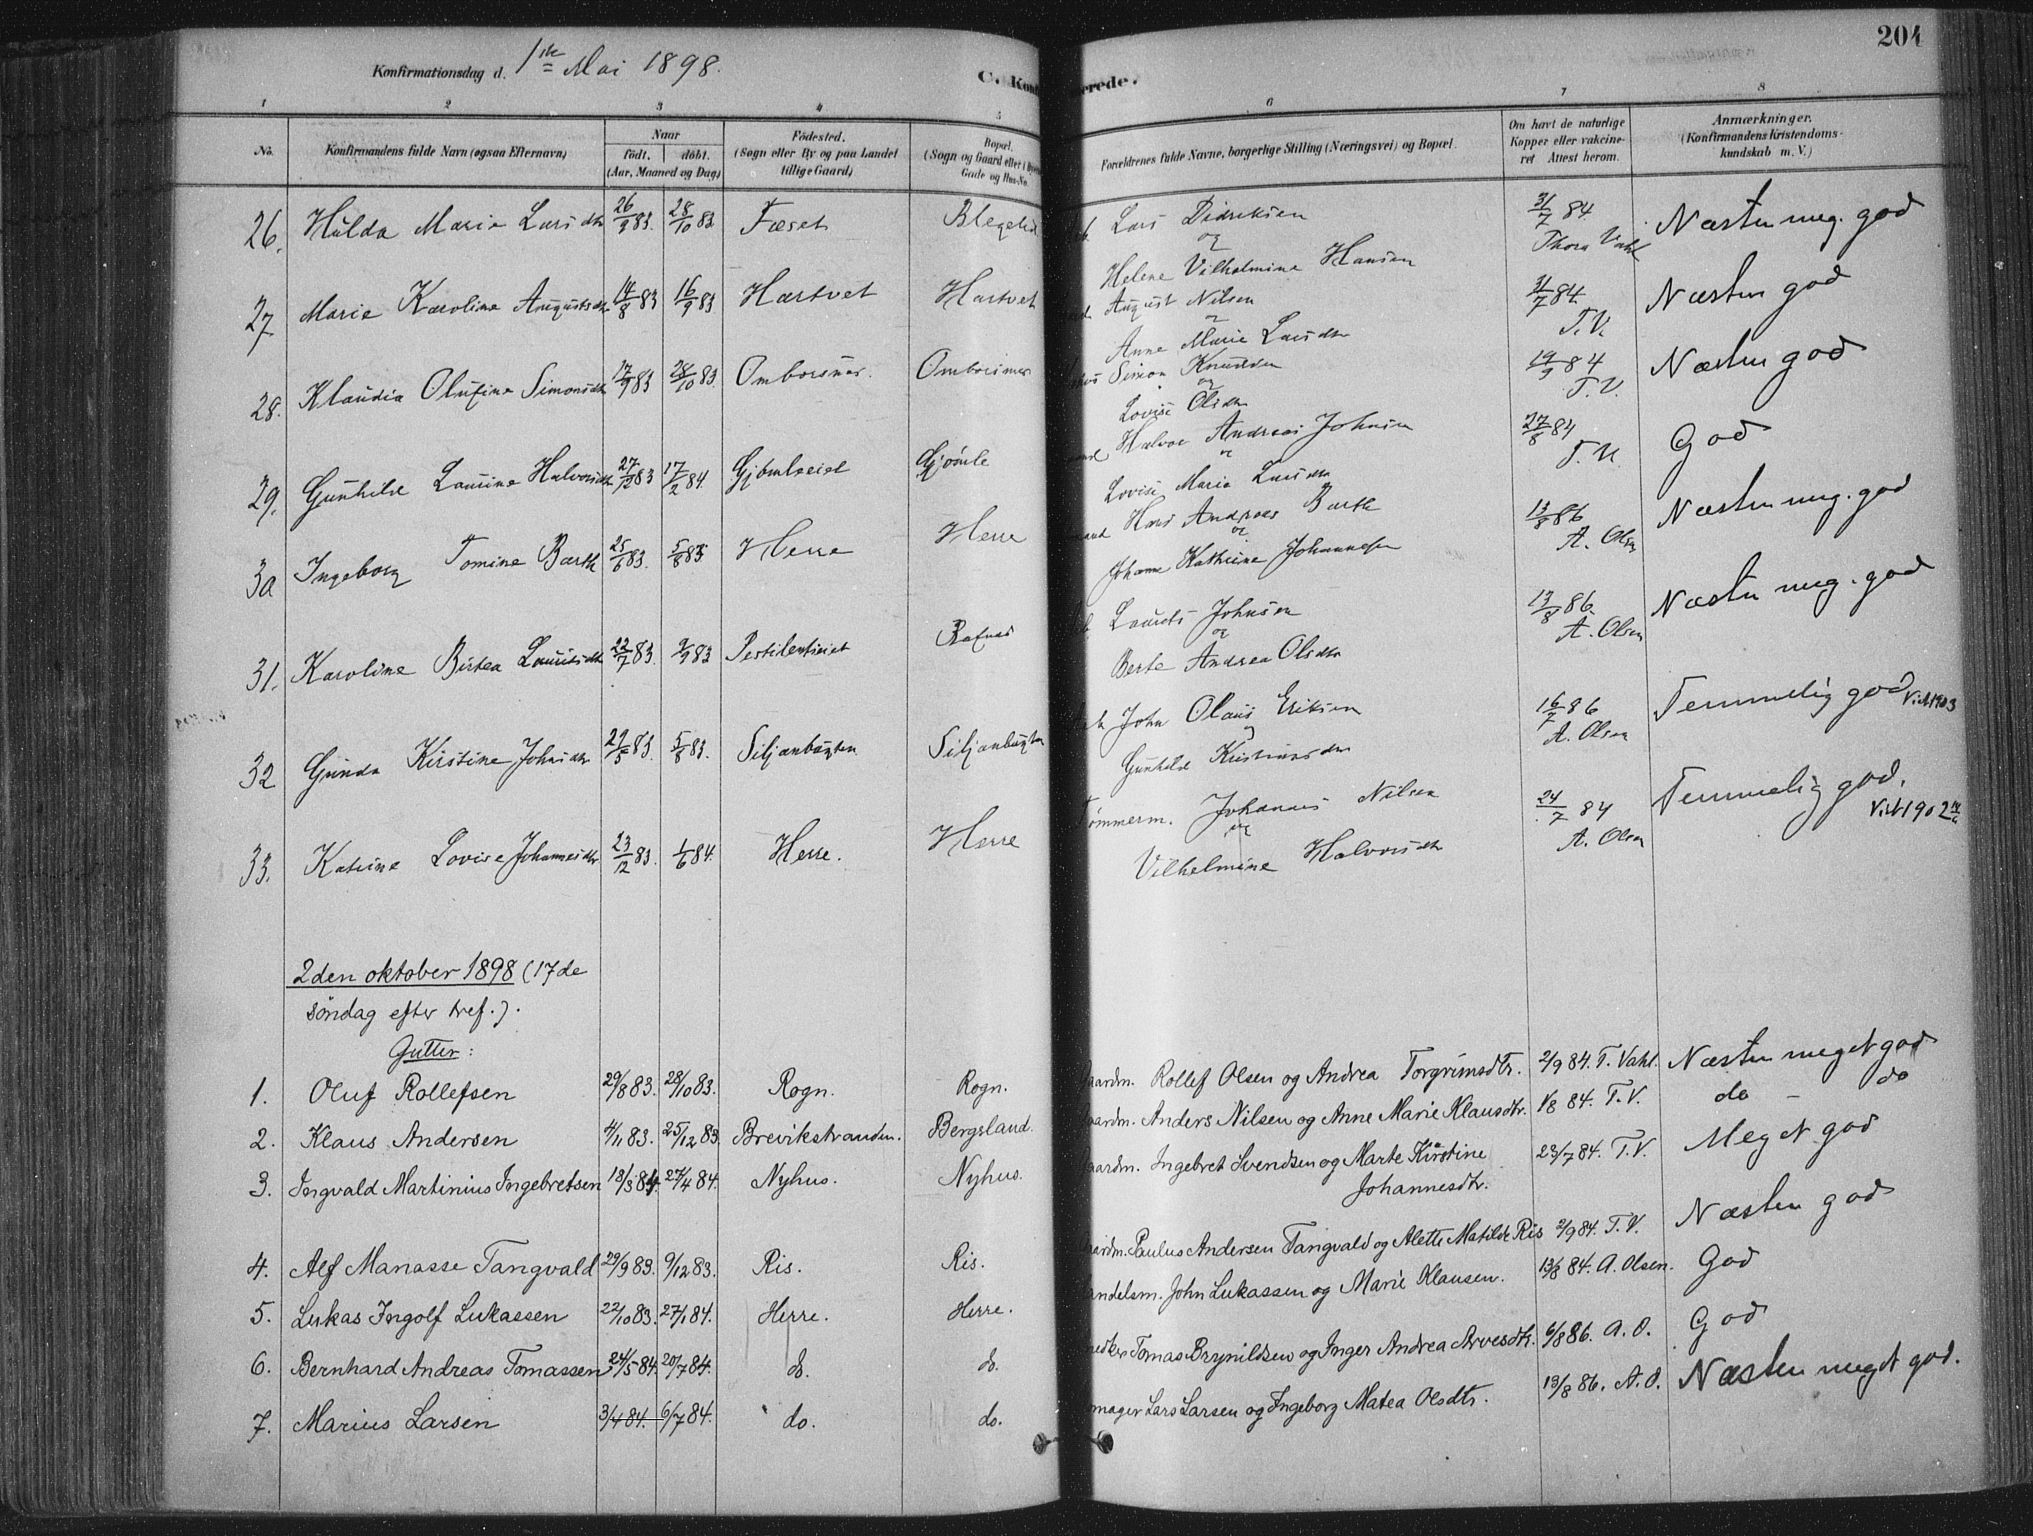 204
Konfirmationsdag d. 1ste Mai 1898.
C. Konf
erede.
1 2 3 4 5 6 7 8
No.
Konfirmandens fulde Navn (ogsaa Efternavn)
Naar
født. døbt.
(Aar, Maaned og Dag)
Fødested.
(Sogn eller By og paa Landet
tillige Gaard)
Bopæl.
(Sogn og Gaard eller i Byen
Gade og Hus-No.
Forældrenes fulde Navne, borgerlige Stilling (Næringsvei) og Bopæl.
Om havt de naturlige
Kopper eller vakcine-
ret Attest herom.
Anmærkninger.
(Konfirmandens Kristendoms-
kundskab m. V.)
26. Hulda Marie Larsdtr 26/9 83. 28/10 83 Fæset Lars Didriksen 31/7 84. Næsten meg. god
og Thora Vahl
Helene Vilhelmine Hansen
27 Marie Karoline Augustsdtr 14/8 83 16/9 83 Hartvet Hartvet August Nilsen 31/7 84. Næsten god
og T.V.
Anne Marie Larsdtr
28. Klaudia Olufine Simonsdtr 17/9 83 28/10 83 Omborsnes. Omborsnes Simon Knudsen 19/9 84 Næsten god
og T.V.
Lovise Olsdtr
29. Gunhild Laurine Halvorsdtr 27/12 83 17/2 84. Gjømleeiet Gjømle Halvor Andreas Johnsen 27/8 84 God
og T.V.
Lovise Marie Larsdtr
30 Ingeborg Tomine Barth 25/6 83. 5/8 83 Herre Herre Hans Andreas Barth 13/8 86 Næsten meg. god
og A. Olsen
Johanne Kathrine Johannesen
31. Karoline Birtea Lauritsdtr 22/7 83. 2/9 83 Rafnes Laurits Johnsen 13/8 86 Næsten meg. god
og A. Olsen
Berte Andrea Olsdtr
32 Gunda Kirstine Johnsdtr 29/5 83. 5/8 83. Siljanbugten Siljanbugten John Olaus Eriksen 16/7 86 Temmelig god
A. Olsen
Gunhild Kristiansdtr
33. Katrine Lovise Johannesdtr 23/12 83. 1/6 84. Herre. Herre Tømmerm. Johannes Nilsen 24/7 84 Temmelig god.
og A. Olsen
Vilhelmine Halvorsdtr
2den oktober 1898 (17de
søndag efter tref.).
Gutter:
1. Oluf Rollefsen 29/8 83. 28/10 83. Rogn. Rogn. aardm. Rollef Olsen og Andrea Torgrimsdtr. 2/9 84. T. Vahl. Næsten meget god
2. Klaus Andersen 4/11 83. 25/12 83. Brevikstranden. Bergsland. aardm. Anders Nilsen og Anne Marie Klausdtr. 1/8 84. T.V. do - do
3. Ingvald Martinius Ingebretsen 13/3 84. 27/4 84. Nyhus. Nyhus. aardm. Ingebret Svendsen og Marte Kirstine 23/7 84. T.V. Meget god
Johannesdtr.
4. Alf Manasse Tangvald 29/9 83. 9/12 83. Ris. Ris. aardm. Paulus Andersen Tangvald og Alette Matilde Ris 2/9 84. T.V. Næsten god
5. Lukas Ingolf Lukassen 22/10 83. 27/1 84. Herre. Herre. andelsm. John Lukassen og Marie Klausen. 13/8 84. A. Olsen. God
6. Bernhard Andreas Tomassen 24/5 84. 20/7 84. do. do. nedker Tomas Brynildsen og Inger Andrea Arvesdtr. 6/8 86. A. O. God
7. Marius Larsen 3/4 84. 6/7 84. do. do. mager Lars Larsen og Ingeborg Matea Olsdtr. 13/8 86. A. O. Næsten meget god.